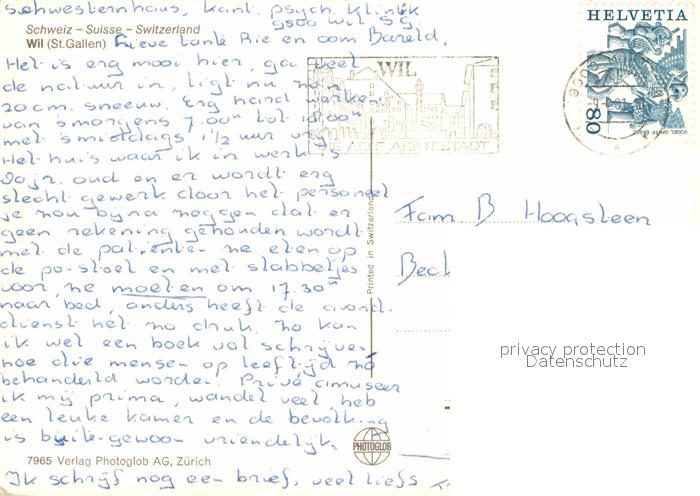 Schwesternhaus, Kant. psych. Klinik
9500 Wil Sg.
Schweiz – Suisse – Switzerland
Wil (St.Gallen)
Lieve tante Rie en oom Bareld,
Het is erg mooi hier, ga veel
de natuur in, ligt nu zo'n
20 cm. sneeuw. Erg hard werken
van 's morgens 7.00u tot 18.00u
met 's middags 1½ uur vrij
Het huis waar ik in werk is
jr. oud en er wordt erg
slecht gewerkt door het personeel
je zou byna zeggen dat er
geen rekening gehouden wordt
met de patiënten ze eten op
de po-stoel en met slabbetjes
voor, ze moeten om 17.30u
naar bed, anders heeft de avond-
dienst het zo druk. Zo kan
ik wel een boek vol schrijven
hoe die mensen op leeftijd zó
behandeld worden. Privé amuseer
ik mij prima, wandel veel heb
een leuke kamer en de bevolking
is buitengewoon vriendelijk.
Ik schrijf nog een brief, veel liefs
7965 Verlag Photoglob AG, Zürich
PHOTOGLOB
Printed in Switzerland
WIL
DIE ALTE ÄBTESTADT
HELVETIA
80
9500
Fam B Hoogsteen
privacy protection
Datenschutz